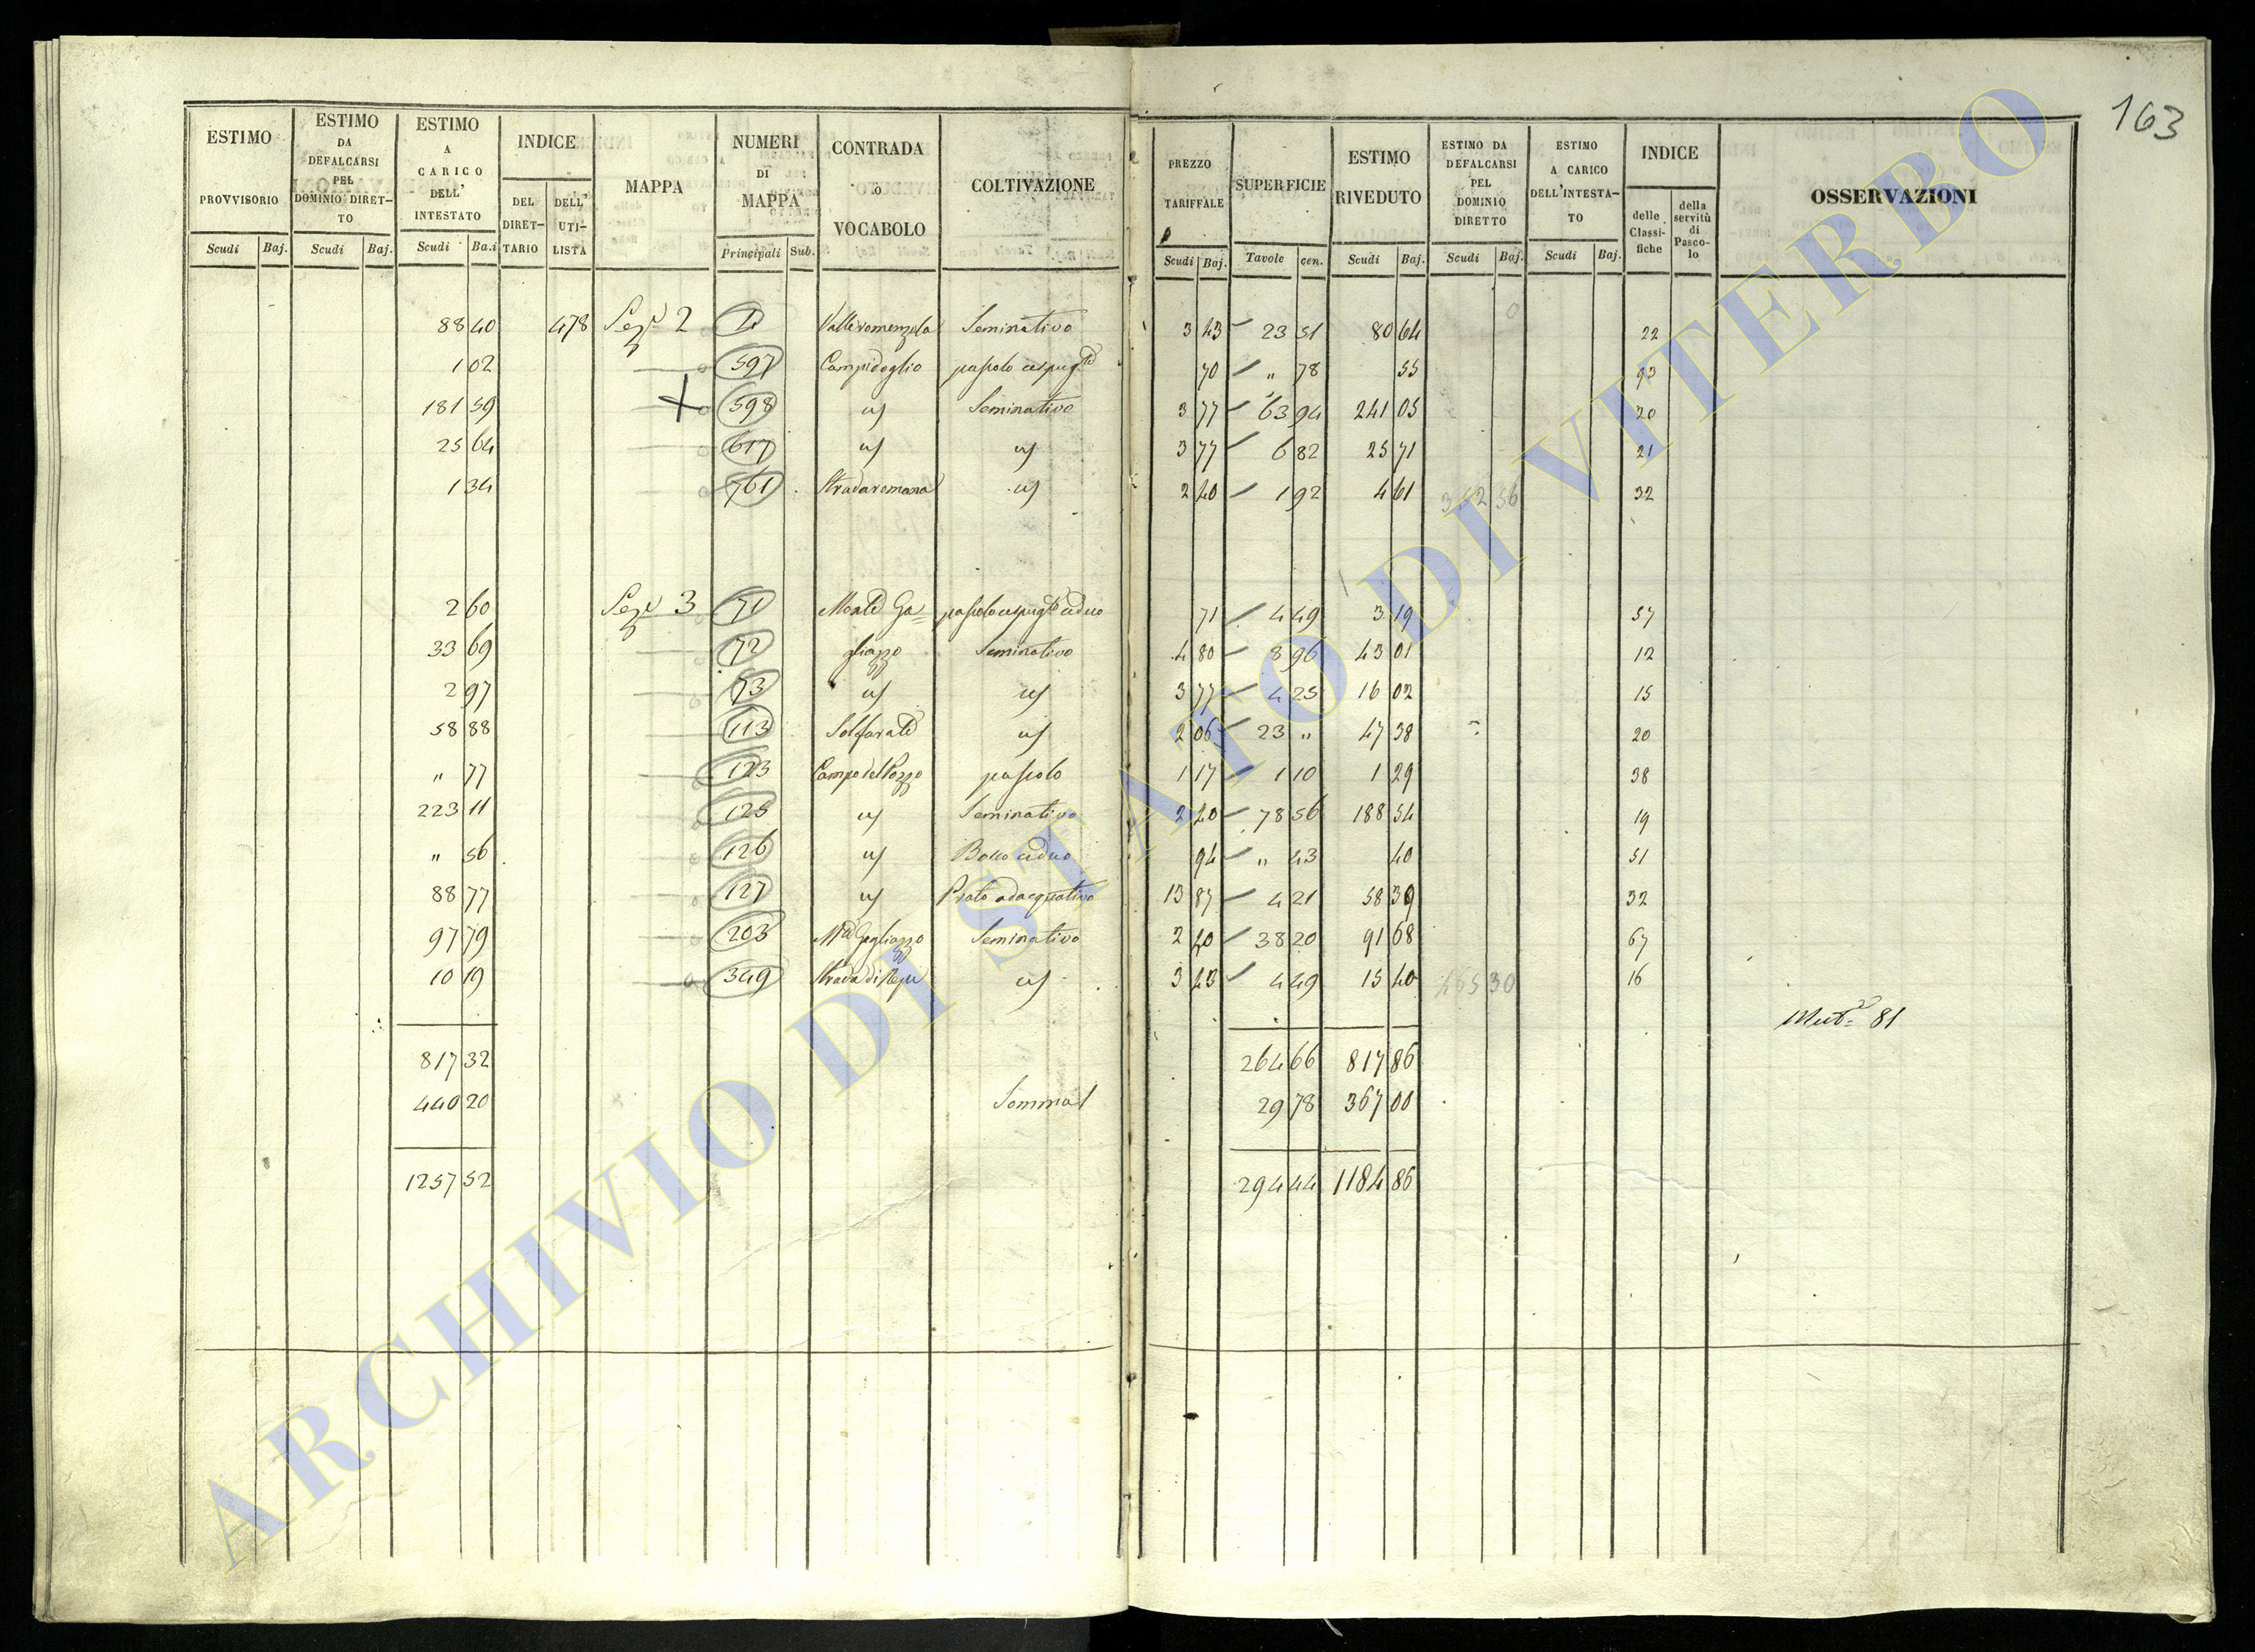 163
ESTIMO PROVVISORIO
ESTIMO DA DEFALCARSI PEL DOMINIO DIRET-TO
ESTIMO A CARICO DELL' INTESTATO
INDICE
DEL DIRET-TARIO
DELL' UTI-LISTA
MAPPA
NUMERI DI MAPPA
CONTRADA o VOCABOLO
COLTIVAZIONE
PREZZO TARIFFALE
SUPERFICIE
ESTIMO RIVEDUTO
ESTIMO DA DEFALCARSI PEL DOMINIO DIRETTO
ESTIMO A CARICO DELL'INTESTA-TO
INDICE
delle Classi-fiche
della servitù di Pasco-lo
OSSERVAZIONI
Scudi Baj. Scudi Baj. Scudi Baj. Principali Sub. Scudi Baj. Tavole cen. Scudi Baj. Scudi Baj. Scudi Baj.
88 40 478 Sez.e 2 Seminativo 3 43 23 51 80 64 22
1 02 597 Campidoglio 70 " 78 55 93
181 59 598 Seminativo 3 77 63 94 241 05 20
25 64 617 3 77 6 82 25 71 21
1 34 761 Strada romana 2 40 1 92 4 61 352 56 32
2 60 Sez.e 3 71 Monte Ga= 71 4 49 3 19 57
33 69 72 gliazzo Seminativo 4 80 8 96 43 01 12
2 97 73 3 77 4 25 16 02 15
58 88 113 Solfarate 2 06 23 " 47 38 20
" 77 123 Campo del Pozzo pascolo 1 17 1 10 1 29 38
223 11 125 Seminativo 2 40 78 56 188 54 19
" 56 126 Bosco ceduo 94 " 43 40 51
88 77 127 Prato adacquativo 13 87 4 21 58 39 32
97 79 203 Seminativo 2 40 38 20 91 68 67
10 19 349 3 43 4 49 15 40 465 30 16
81
817 32 264 66 817 86
440 20 Somma 29 78 367 00
1257 52 294 44 1184 86
ARCHIVIO DI STATO DI VITERBO